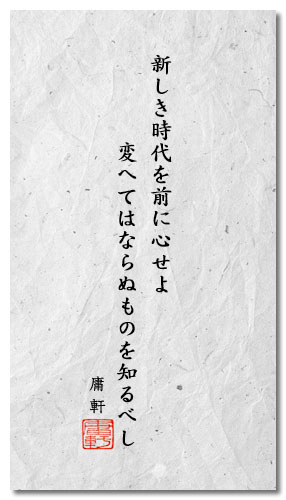 新しき時代を前に心せよ
変へてはならぬものを知るべし
庸軒